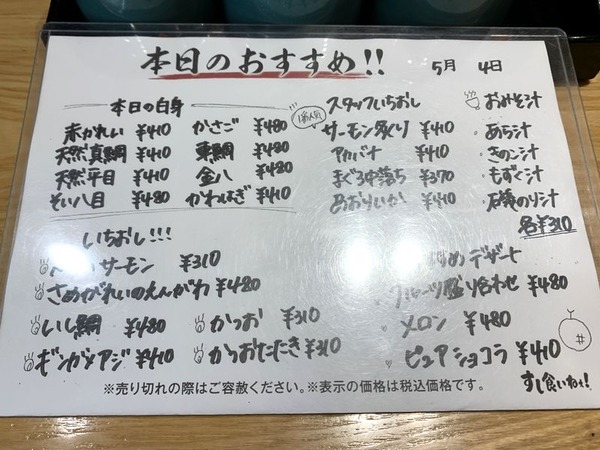 本日のおすすめ!!
5月 4日
本日の白身
赤かれい ¥410 かさご ¥480
天然真鯛 ¥410 東鯛 ¥480
天然平目 ¥410 金八 ¥480
そい八目 ¥480 かわはぎ ¥410
スタッフいちおし
サーモン炙り ¥410
アカバナ ¥410
まぐろ中落ち ¥370
あおりいか ¥410
おみそ汁
・あら汁
・きのこ汁
・もずく汁
・石蓴のり汁
各¥310
いちおし!!!
サーモン ¥310
さめがれいのえんがわ ¥480
いし鯛 ¥480 かつお ¥310
ギンガメアジ ¥410 かつおたたき ¥310
すすめデザート
フルーツ盛り合わせ ¥480
メロン ¥480
ピュアショコラ ¥410
すし食いねぇ!
※売り切れの際はご容赦ください。※表示の価格は税込価格です。